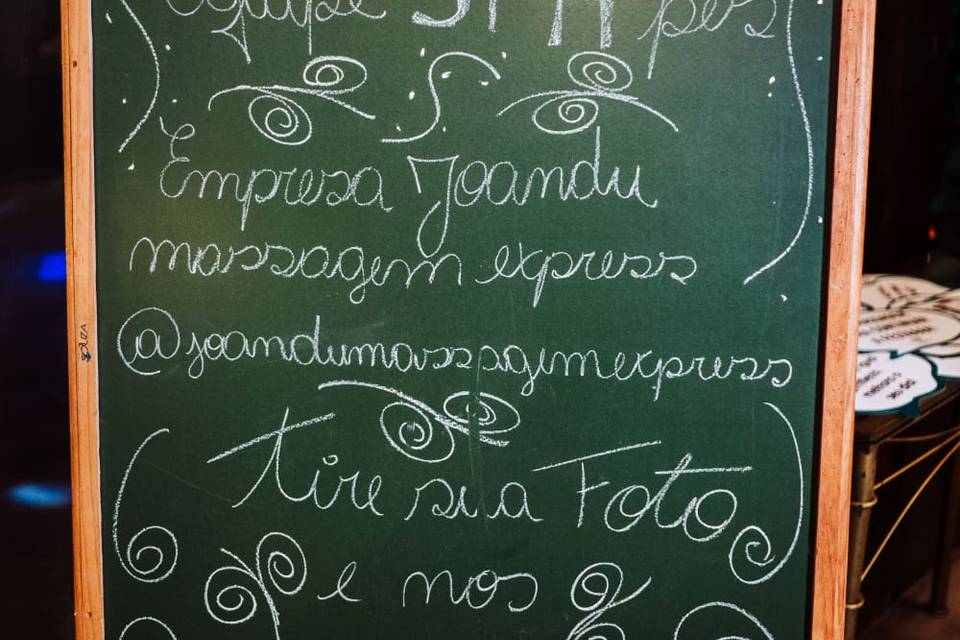 Equipe SPA pés
Empresa Joandu
massagem express
@joandumassagemexpress
Tire sua Foto
e nos